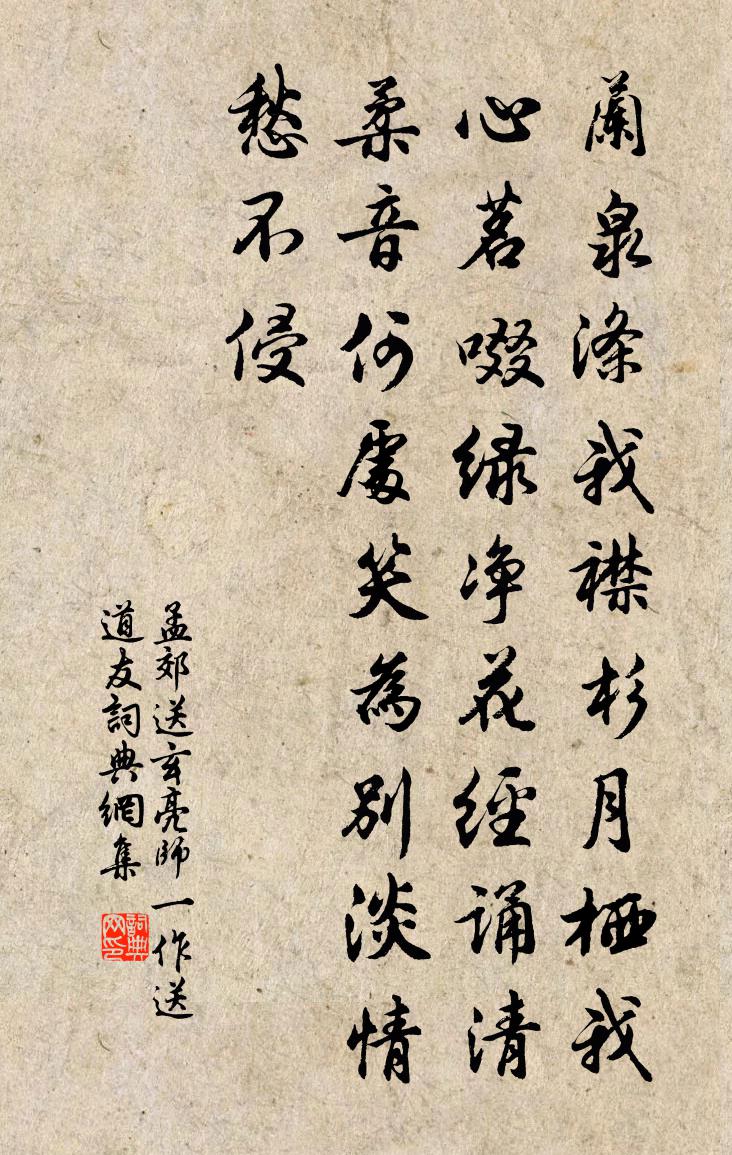 蘭泉滌我襟杉月栖我
心茗啜綠净花經誦清
柔音何處笑為別淡情
愁不侵
孟郊送玄亮師一作送
道友詞典網集
詞典网印